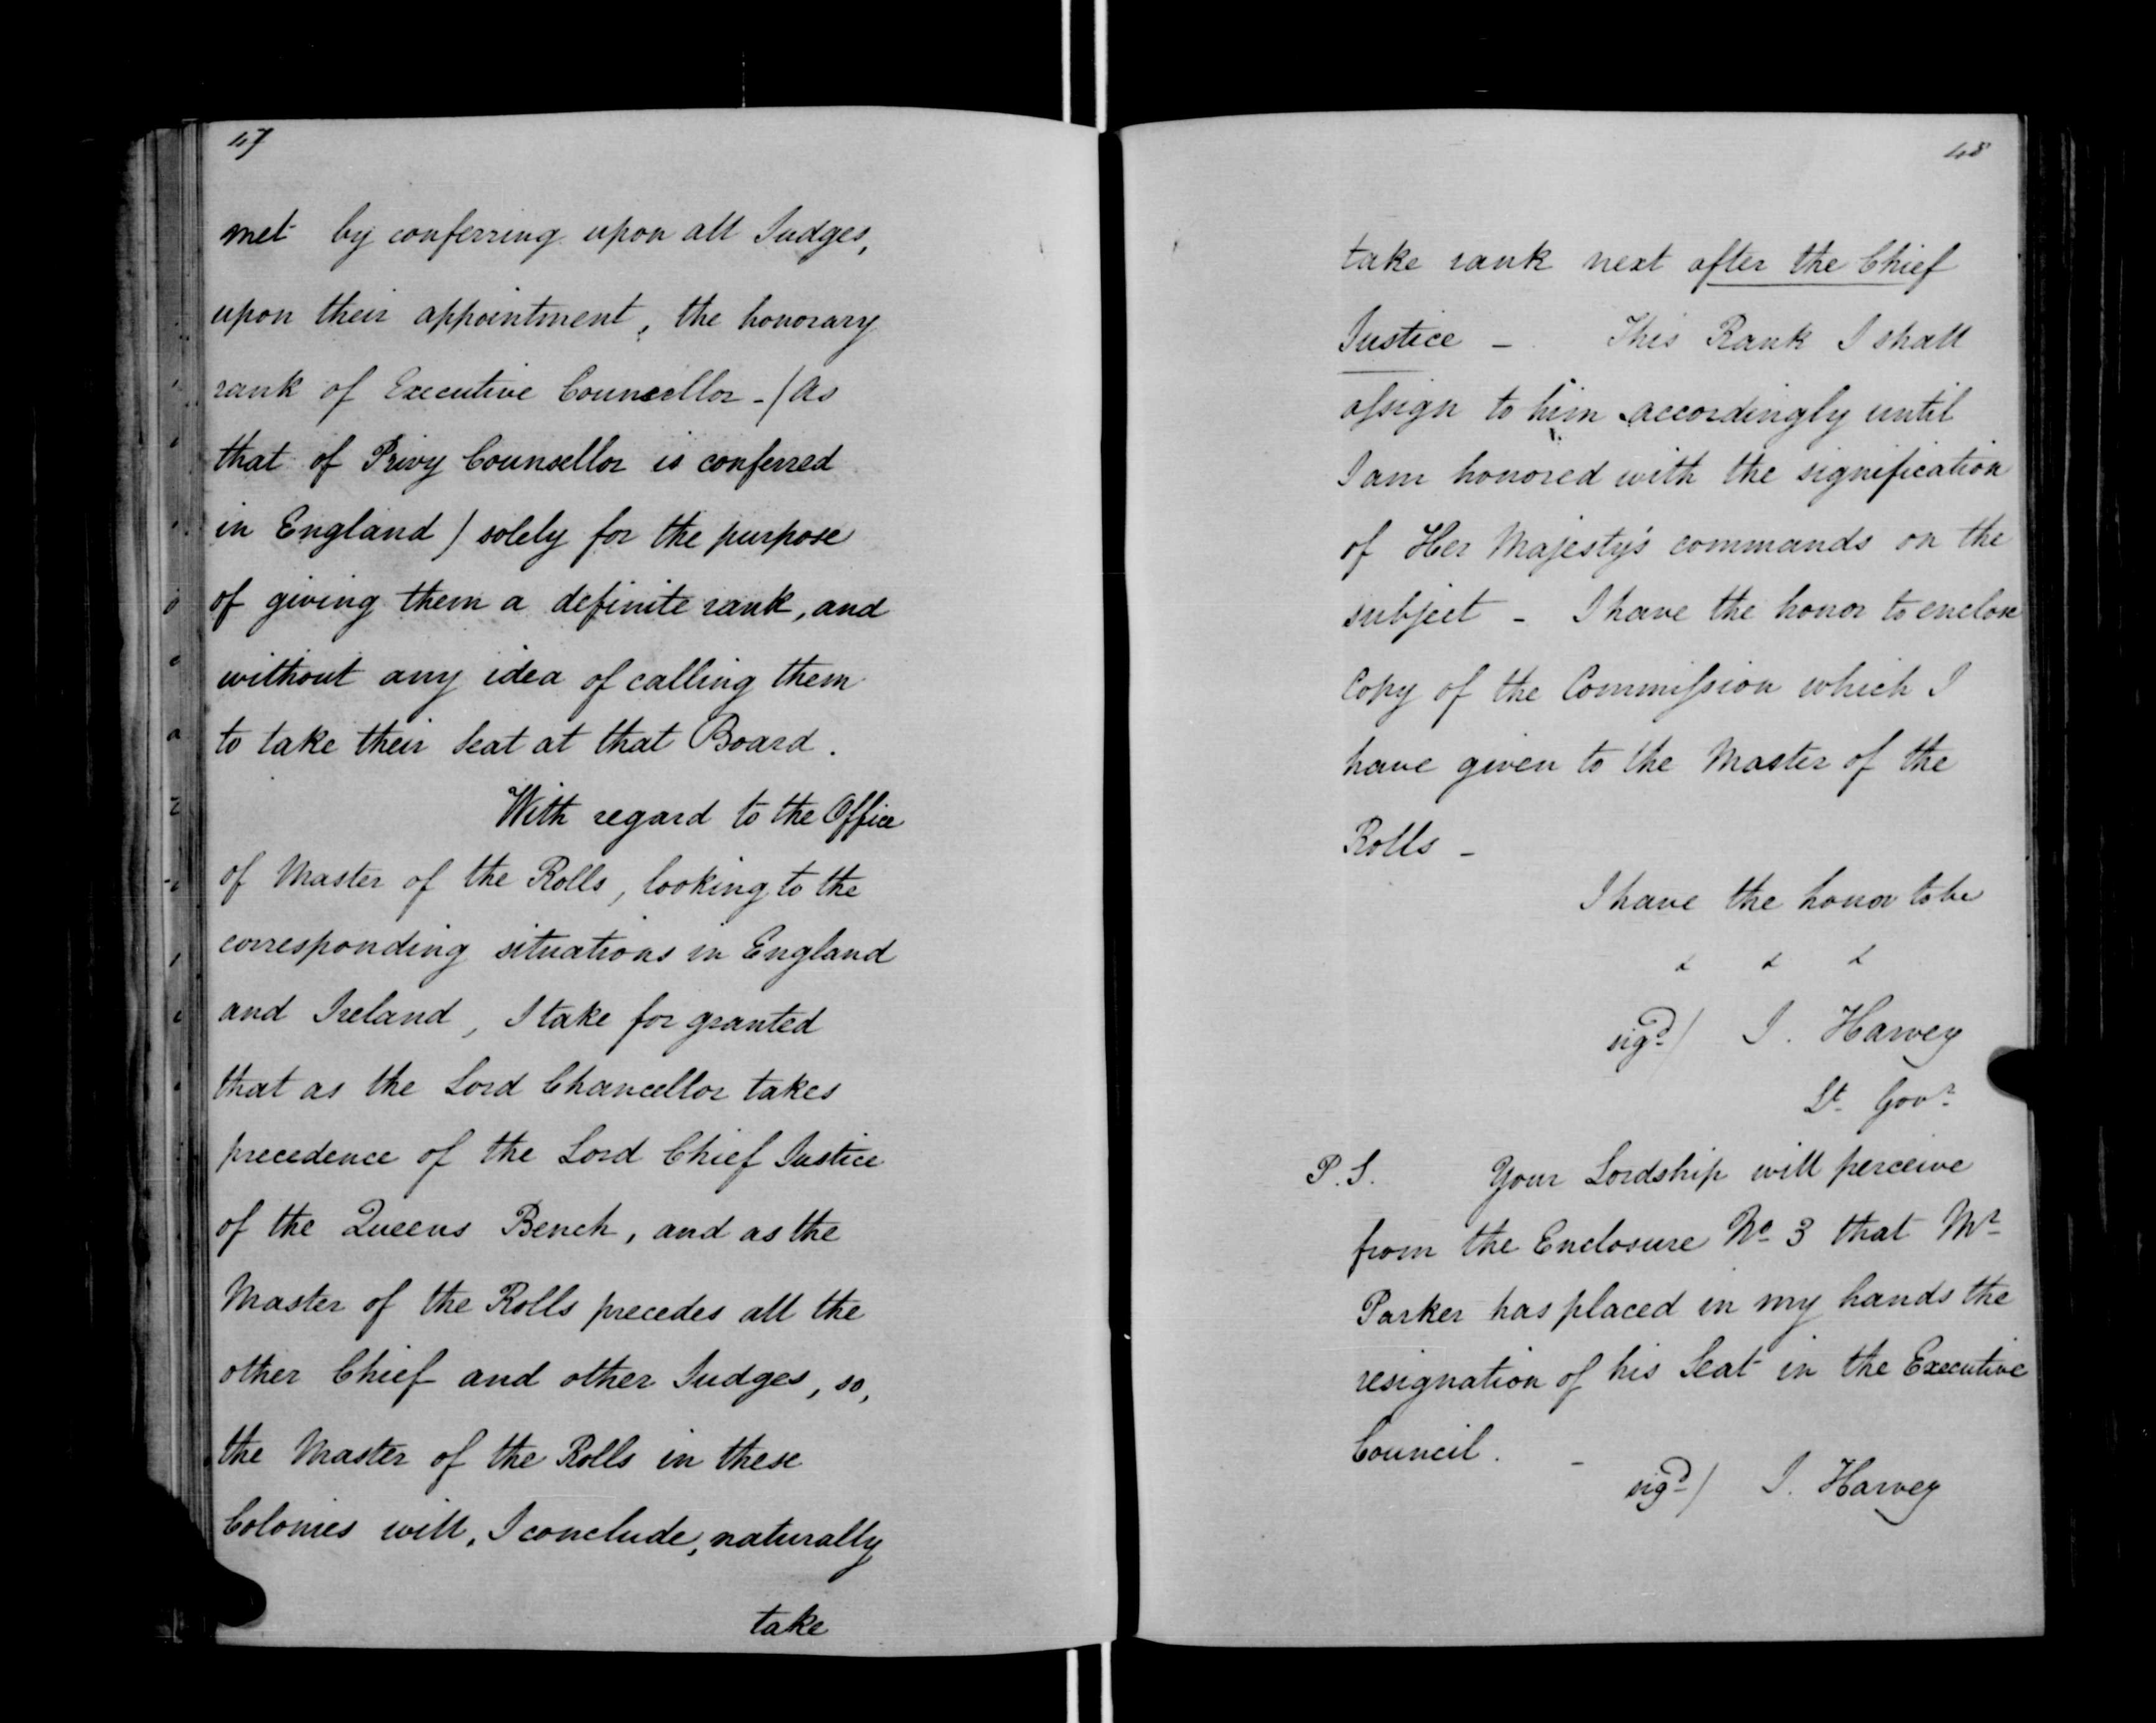 47
met by conferring upon all Judges,
upon their appointment, the honorary
rank of Executive Councellor - (As
that of Privy Counsellor is conferred
in England) solely for the purpose
of giving them a definite rank, and
without any idea of calling them
to take their Seat at that Board.
With regard to the Office
of Master of the Rolls, looking to the
corresponding situations in England
and Ireland, I take for granted
that as the Lord Chancellor takes
precedence of the Lord Chief Justice
of the Queens Bench, and as the
Master of the Rolls precedes all the
other Chief and other Judges, so,
the Master of the Rolls in these
Colonies will, I conclude, naturally
take
48
take rank next after the Chief
Justice - This Rank I shall
assign to him accordingly until
I am honored with the signification
of Her Majesty's commands on the
subject - I have the honor to enclose
Copy of the Commission which I
have given to the Master of the
Rolls -
I have the honor to be
& & &
sigd) J. Harvey
Lt Govr
P.S. Your Lordship will perceive
from the Enclosure No 3 that Mr
Parker has placed in my hands the
resignation of his Seat in the Executive
Council. -
sigd) J. Harvey